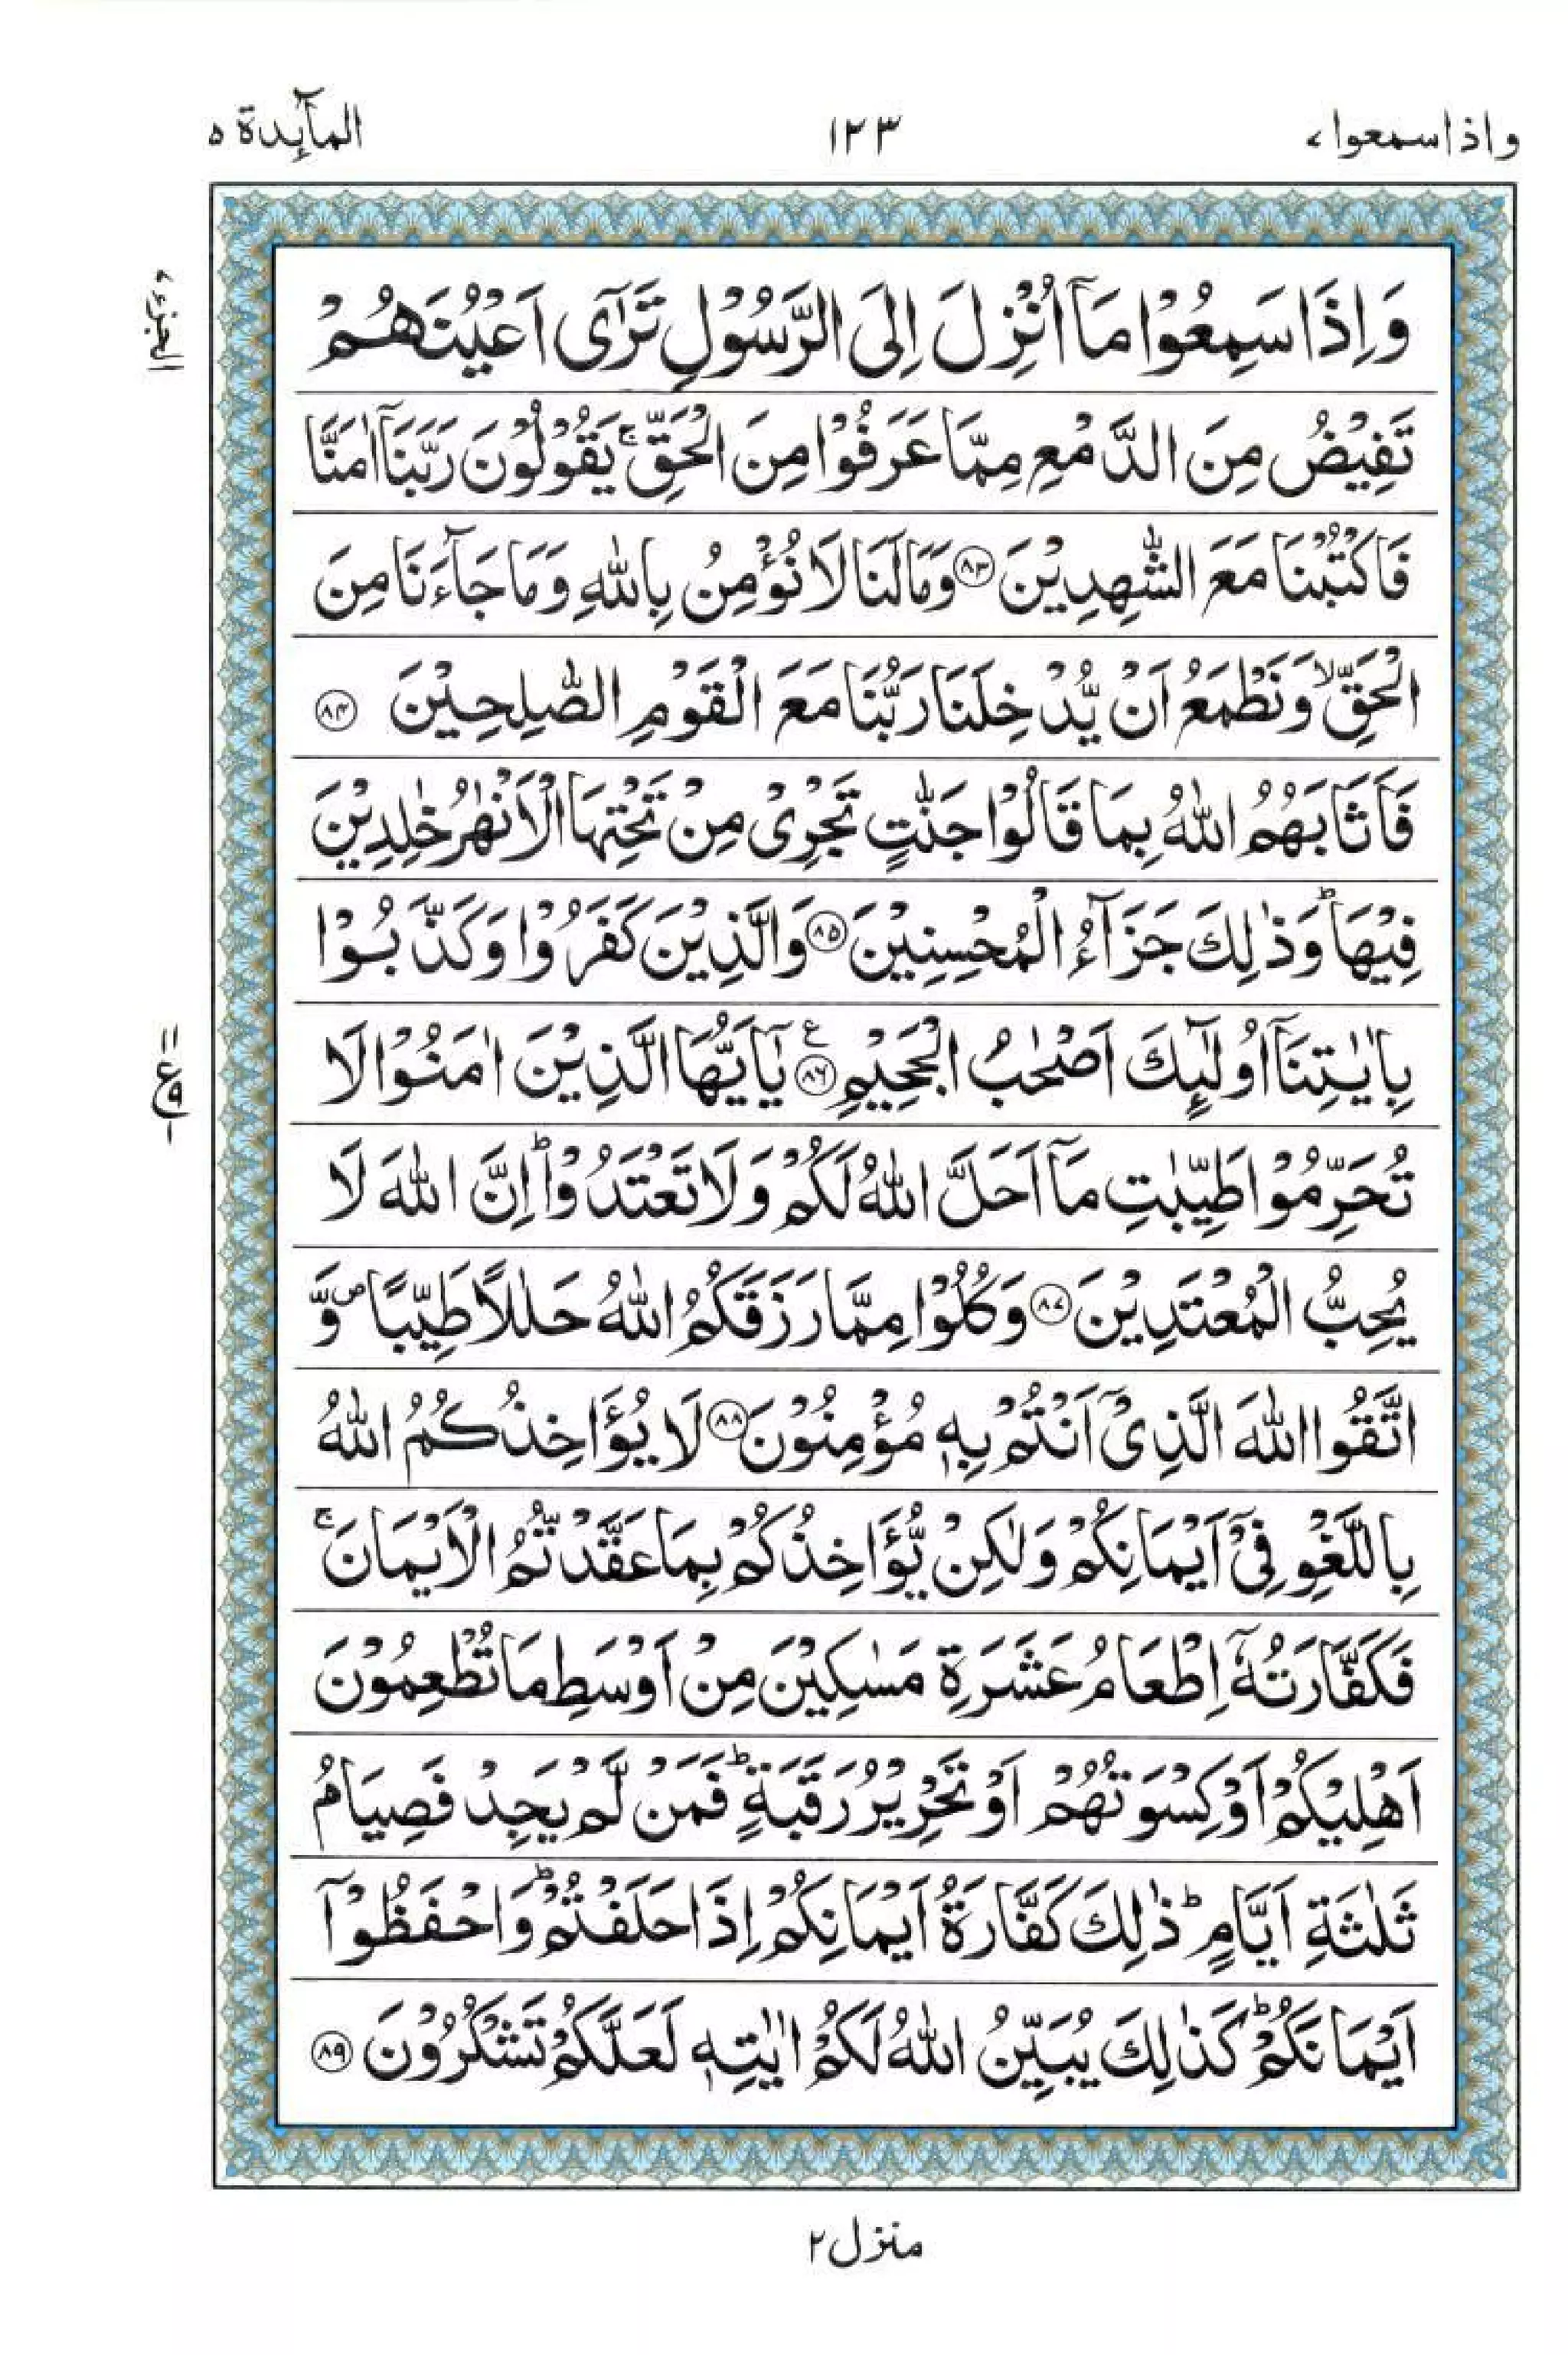 واذاسمعوا ٧
١٢٣
المآئدة ٥
الجزء ٧
وَاِذَا سَمِعُوْا مَاۤ اُنْزِلَ اِلَى الرَّسُوْلِ تَرٰۤى اَعْيُنَهُمْ
تَفِيْضُ مِنَ الدَّمْعِ مِمَّا عَرَفُوْا مِنَ الْحَقِّ ۚ يَقُوْلُوْنَ رَبَّنَاۤ اٰمَنَّا
فَاكْتُبْنَا مَعَ الشّٰهِدِيْنَ ٨٣ وَمَا لَنَا لَا نُؤْمِنُ بِاللّٰهِ وَمَا جَآءَنَا مِنَ
الْحَقِّ ۙ وَنَطْمَعُ اَنْ يُّدْخِلَنَا رَبُّنَا مَعَ الْقَوْمِ الصّٰلِحِيْنَ ٨٤
فَاَثَابَهُمُ اللّٰهُ بِمَا قَالُوْا جَنّٰتٍ تَجْرِىْ مِنْ تَحْتِهَا الْاَنْهٰرُ خٰلِدِيْنَ
فِيْهَا ؕ وَذٰلِكَ جَزَآءُ الْمُحْسِنِيْنَ ٨٥ وَالَّذِيْنَ كَفَرُوْا وَكَذَّبُوْا
بِاٰيٰتِنَاۤ اُولٰٓئِكَ اَصْحٰبُ الْجَحِيْمِ ٨٦ ع يٰۤاَيُّهَا الَّذِيْنَ اٰمَنُوْا لَا
١١ ع ٩ ١
تُحَرِّمُوْا طَيِّبٰتِ مَاۤ اَحَلَّ اللّٰهُ لَكُمْ وَلَا تَعْتَدُوْا ؕ اِنَّ اللّٰهَ لَا
يُحِبُّ الْمُعْتَدِيْنَ ٨٧ وَكُلُوْا مِمَّا رَزَقَكُمُ اللّٰهُ حَلٰلًا طَيِّبًا ۖ وَّ
اتَّقُوا اللّٰهَ الَّذِىْۤ اَنْتُمْ بِهٖ مُؤْمِنُوْنَ ٨٨ لَا يُؤَاخِذُكُمُ اللّٰهُ
بِاللَّغْوِ فِىْۤ اَيْمَانِكُمْ وَلٰكِنْ يُّؤَاخِذُكُمْ بِمَا عَقَّدْتُّمُ الْاَيْمَانَ ۚ
فَكَفَّارَتُهٗۤ اِطْعَامُ عَشَرَةِ مَسٰكِيْنَ مِنْ اَوْسَطِ مَا تُطْعِمُوْنَ
اَهْلِيْكُمْ اَوْ كِسْوَتُهُمْ اَوْ تَحْرِيْرُ رَقَبَةٍ ؕ فَمَنْ لَّمْ يَجِدْ فَصِيَامُ
ثَلٰثَةِ اَيَّامٍ ؕ ذٰلِكَ كَفَّارَةُ اَيْمَانِكُمْ اِذَا حَلَفْتُمْ ؕ وَاحْفَظُوْۤا
اَيْمَانَكُمْ ؕ كَذٰلِكَ يُبَيِّنُ اللّٰهُ لَكُمْ اٰيٰتِهٖ لَعَلَّكُمْ تَشْكُرُوْنَ ٨٩
منزل ٢